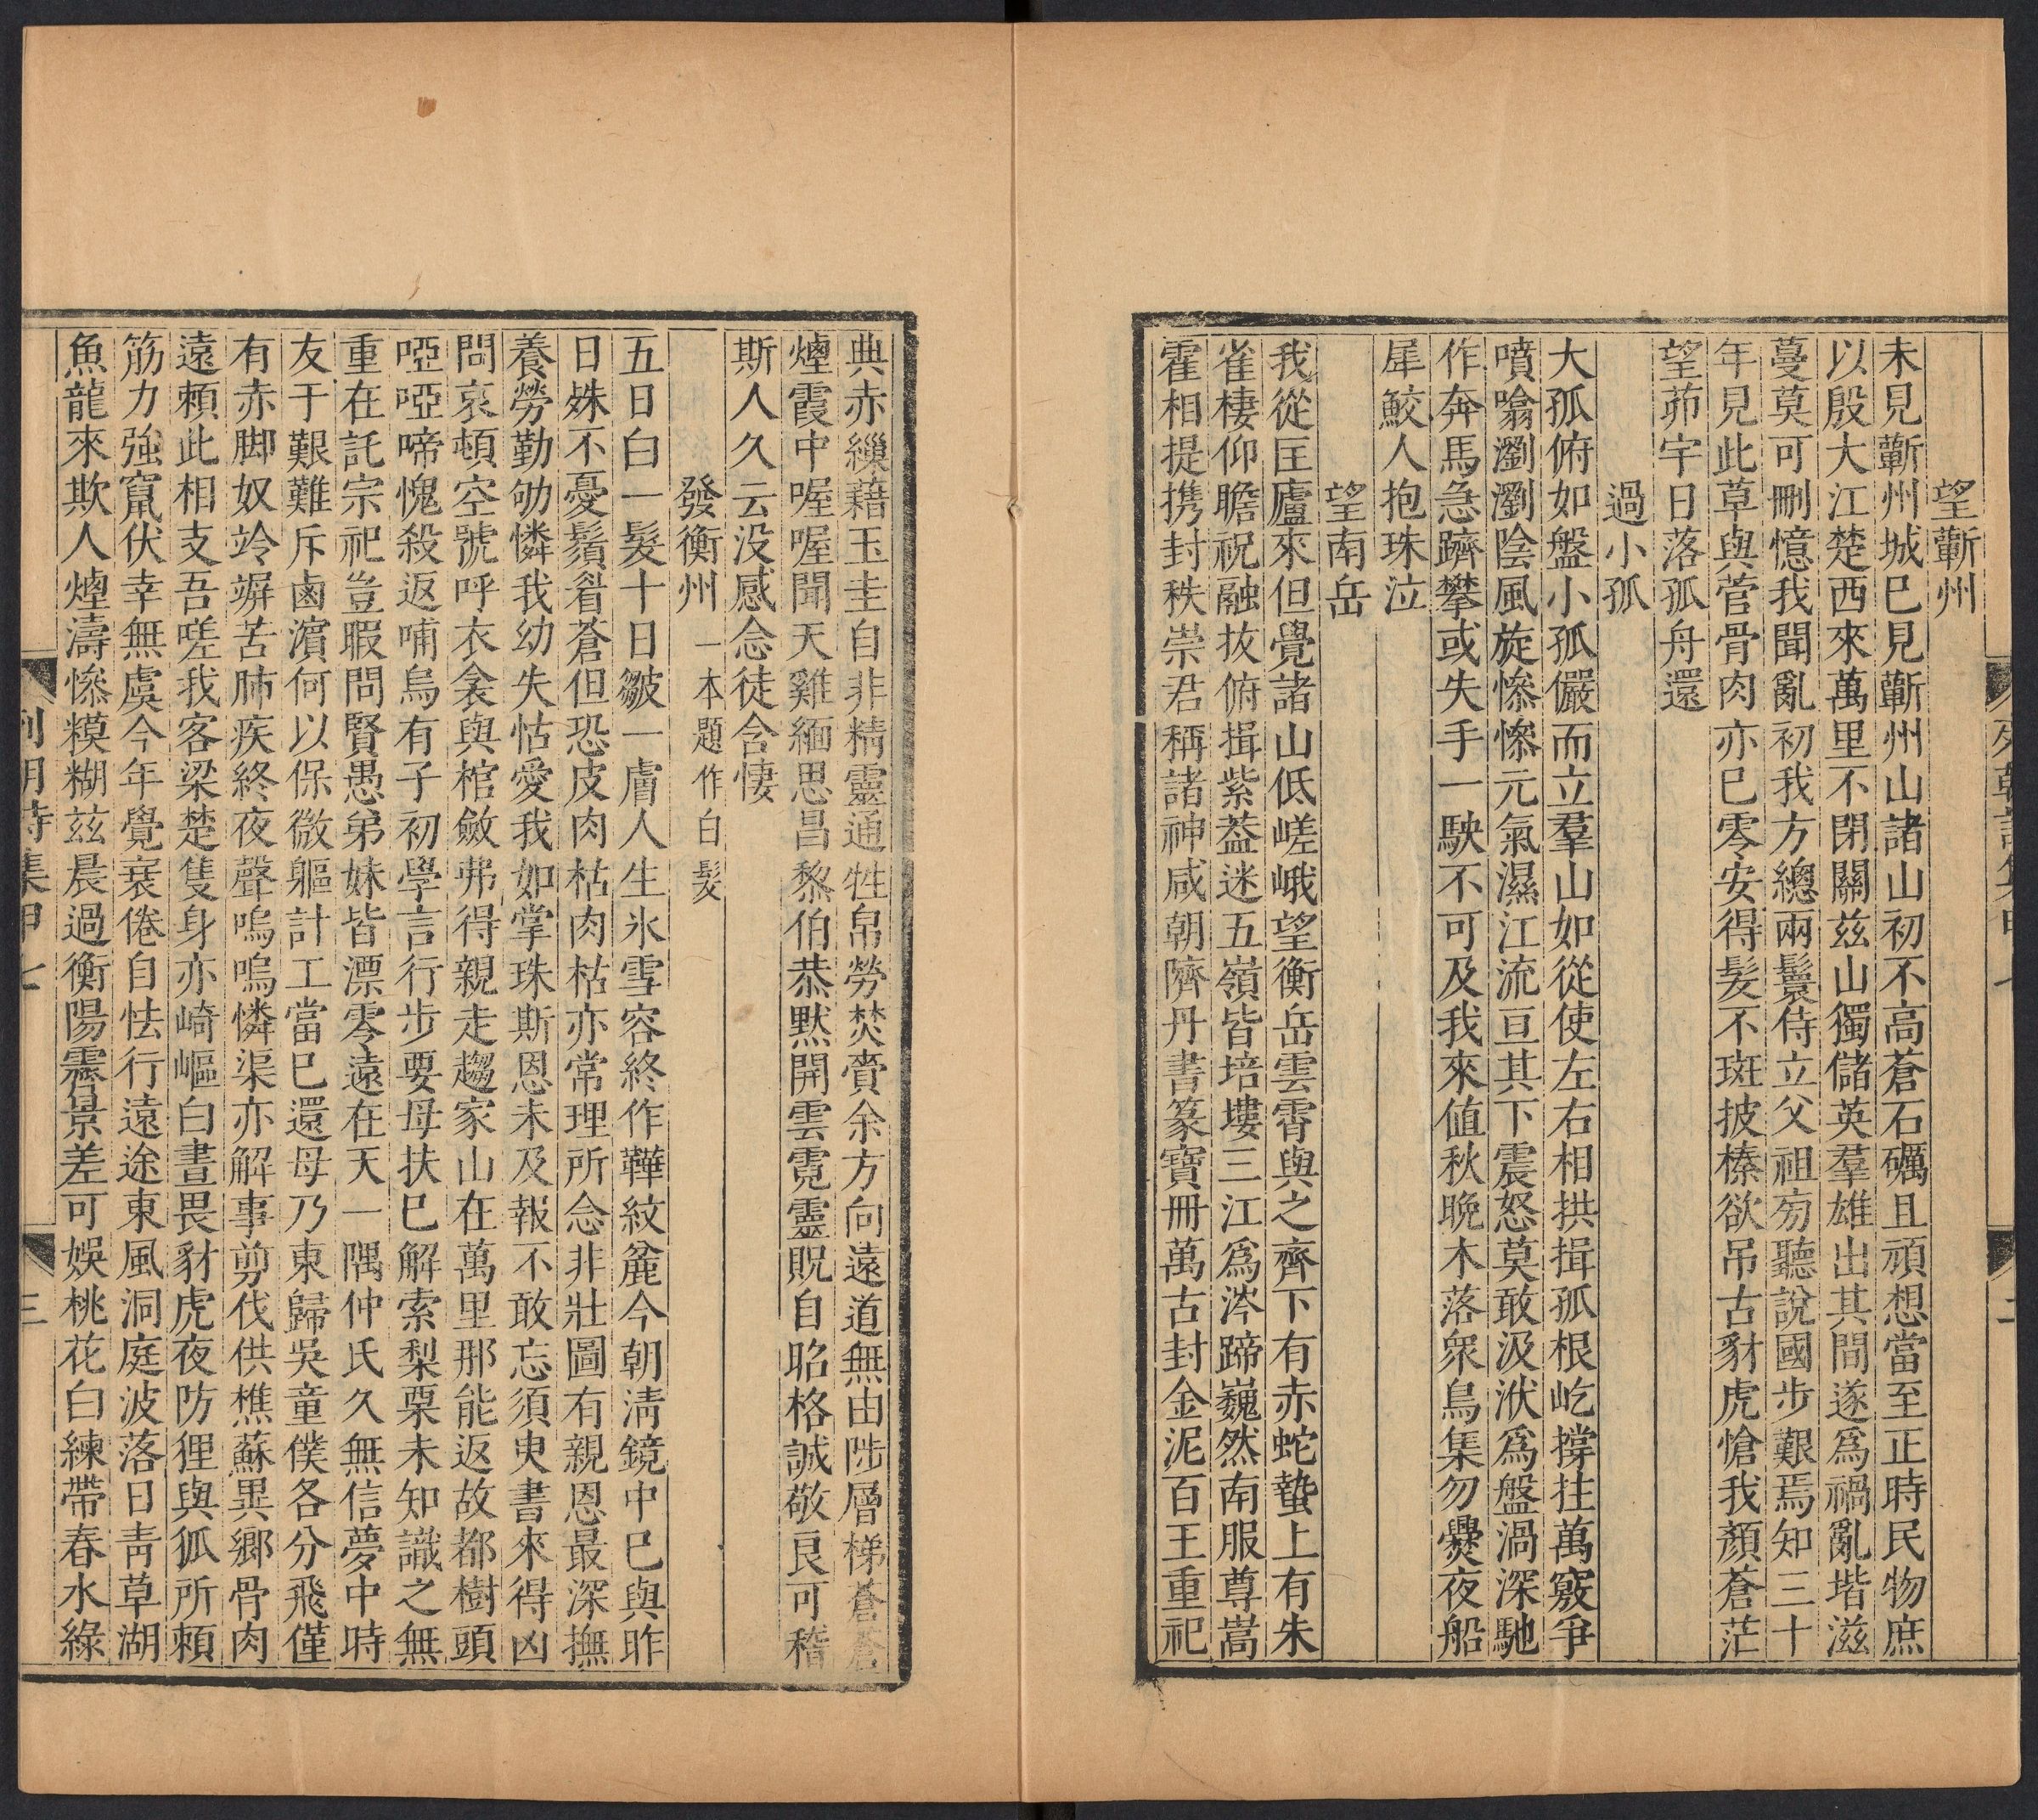 望蘄州
未見蘄州城巳見蘄州山諸山初不高蒼石礪且頑想當至正時民物庶
以殷大江楚西來萬里不閉關兹山獨儲英羣雄出其間遂爲禍亂堦滋
蔓莫可刪憶我聞亂初我方總兩鬟侍立父祖㫄聽說國步艱焉知三十
年見此草與菅骨肉亦巳零安得髪不斑披榛欲吊古豺虎愴我顏蒼茫
望茆宇日落孤舟還
過小孤
大孤俯如盤小孤儼而立羣山如從使左右相拱揖孤根屹撐拄萬竅爭
噴噏瀏瀏陰風旋慘慘元氣濕江流亘其下震怒莫敢汲洑爲盤渦深馳
作奔馬急躋攀或失手一駛不可及我來值秋晩木落衆鳥集勿㸑夜船
犀鮫人抱珠泣
望南岳
我從匡廬來但覺諸山低嵯峨望衡岳雲霄與之齊下有赤蛇蟄上有朱
雀棲仰瞻祝融抜俯揖紫葢迷五嶺皆培塿三江爲涔蹄巍然南服尊嵩
霍相提携封秩崇君稱諸神咸朝隮丹書篆寶冊萬古封金泥百王重祀
典赤繅藉玉圭自非精靈通牲帛勞焚賫余方向遠道無由陟層梯蒼蒼
煙霞中喔喔聞天雞緬思昌黎伯恭默開雲霓靈貺自昭格誠敬良可稽
斯人久云没感念徒含悽
發衡州 一本題作白髪
五日白一髮十日皺一膚人生氷雪容終作鞾紋麄今朝淸鏡中巳與昨
日姝不憂鬚眉蒼但恐皮肉枯肉枯亦常理所念非壯圖有親恩最深撫
養勞勤劬憐我幼失怙愛我如掌珠斯恩未及報不敢忘須臾書來得凶
問哀頓空號呼衣衾與棺斂弗得親走趨家山在萬里那能返故都樹頭
啞啞啼愧殺返哺烏有子初學言行步要母扶巳解索梨栗未知識之無
重在託宗祀豈暇問賢愚弟妹皆漂零遠在天一隅仲氏久無信夢中時
友于艱難斥鹵濵何以保微軀計工當巳還母乃東歸吳童僕各分飛僅
有赤脚奴竛竮苦肺疾終夜聲嗚嗚憐渠亦解事剪伐供樵蘇異鄉骨肉
遠頼此相支吾嗟我客梁楚隻身亦崎嶇白晝畏豺虎夜防狸與狐所頼
筋力強竄伏幸無虞今年覺衰倦自怯行遠途東風洞庭波落日靑草湖
魚龍來欺人煙濤慘糢糊兹晨過衡陽霽景差可娛桃花白練帶春水綠
三